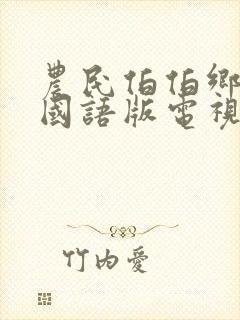 農民伯伯鄉
國語版電視
竹內愛